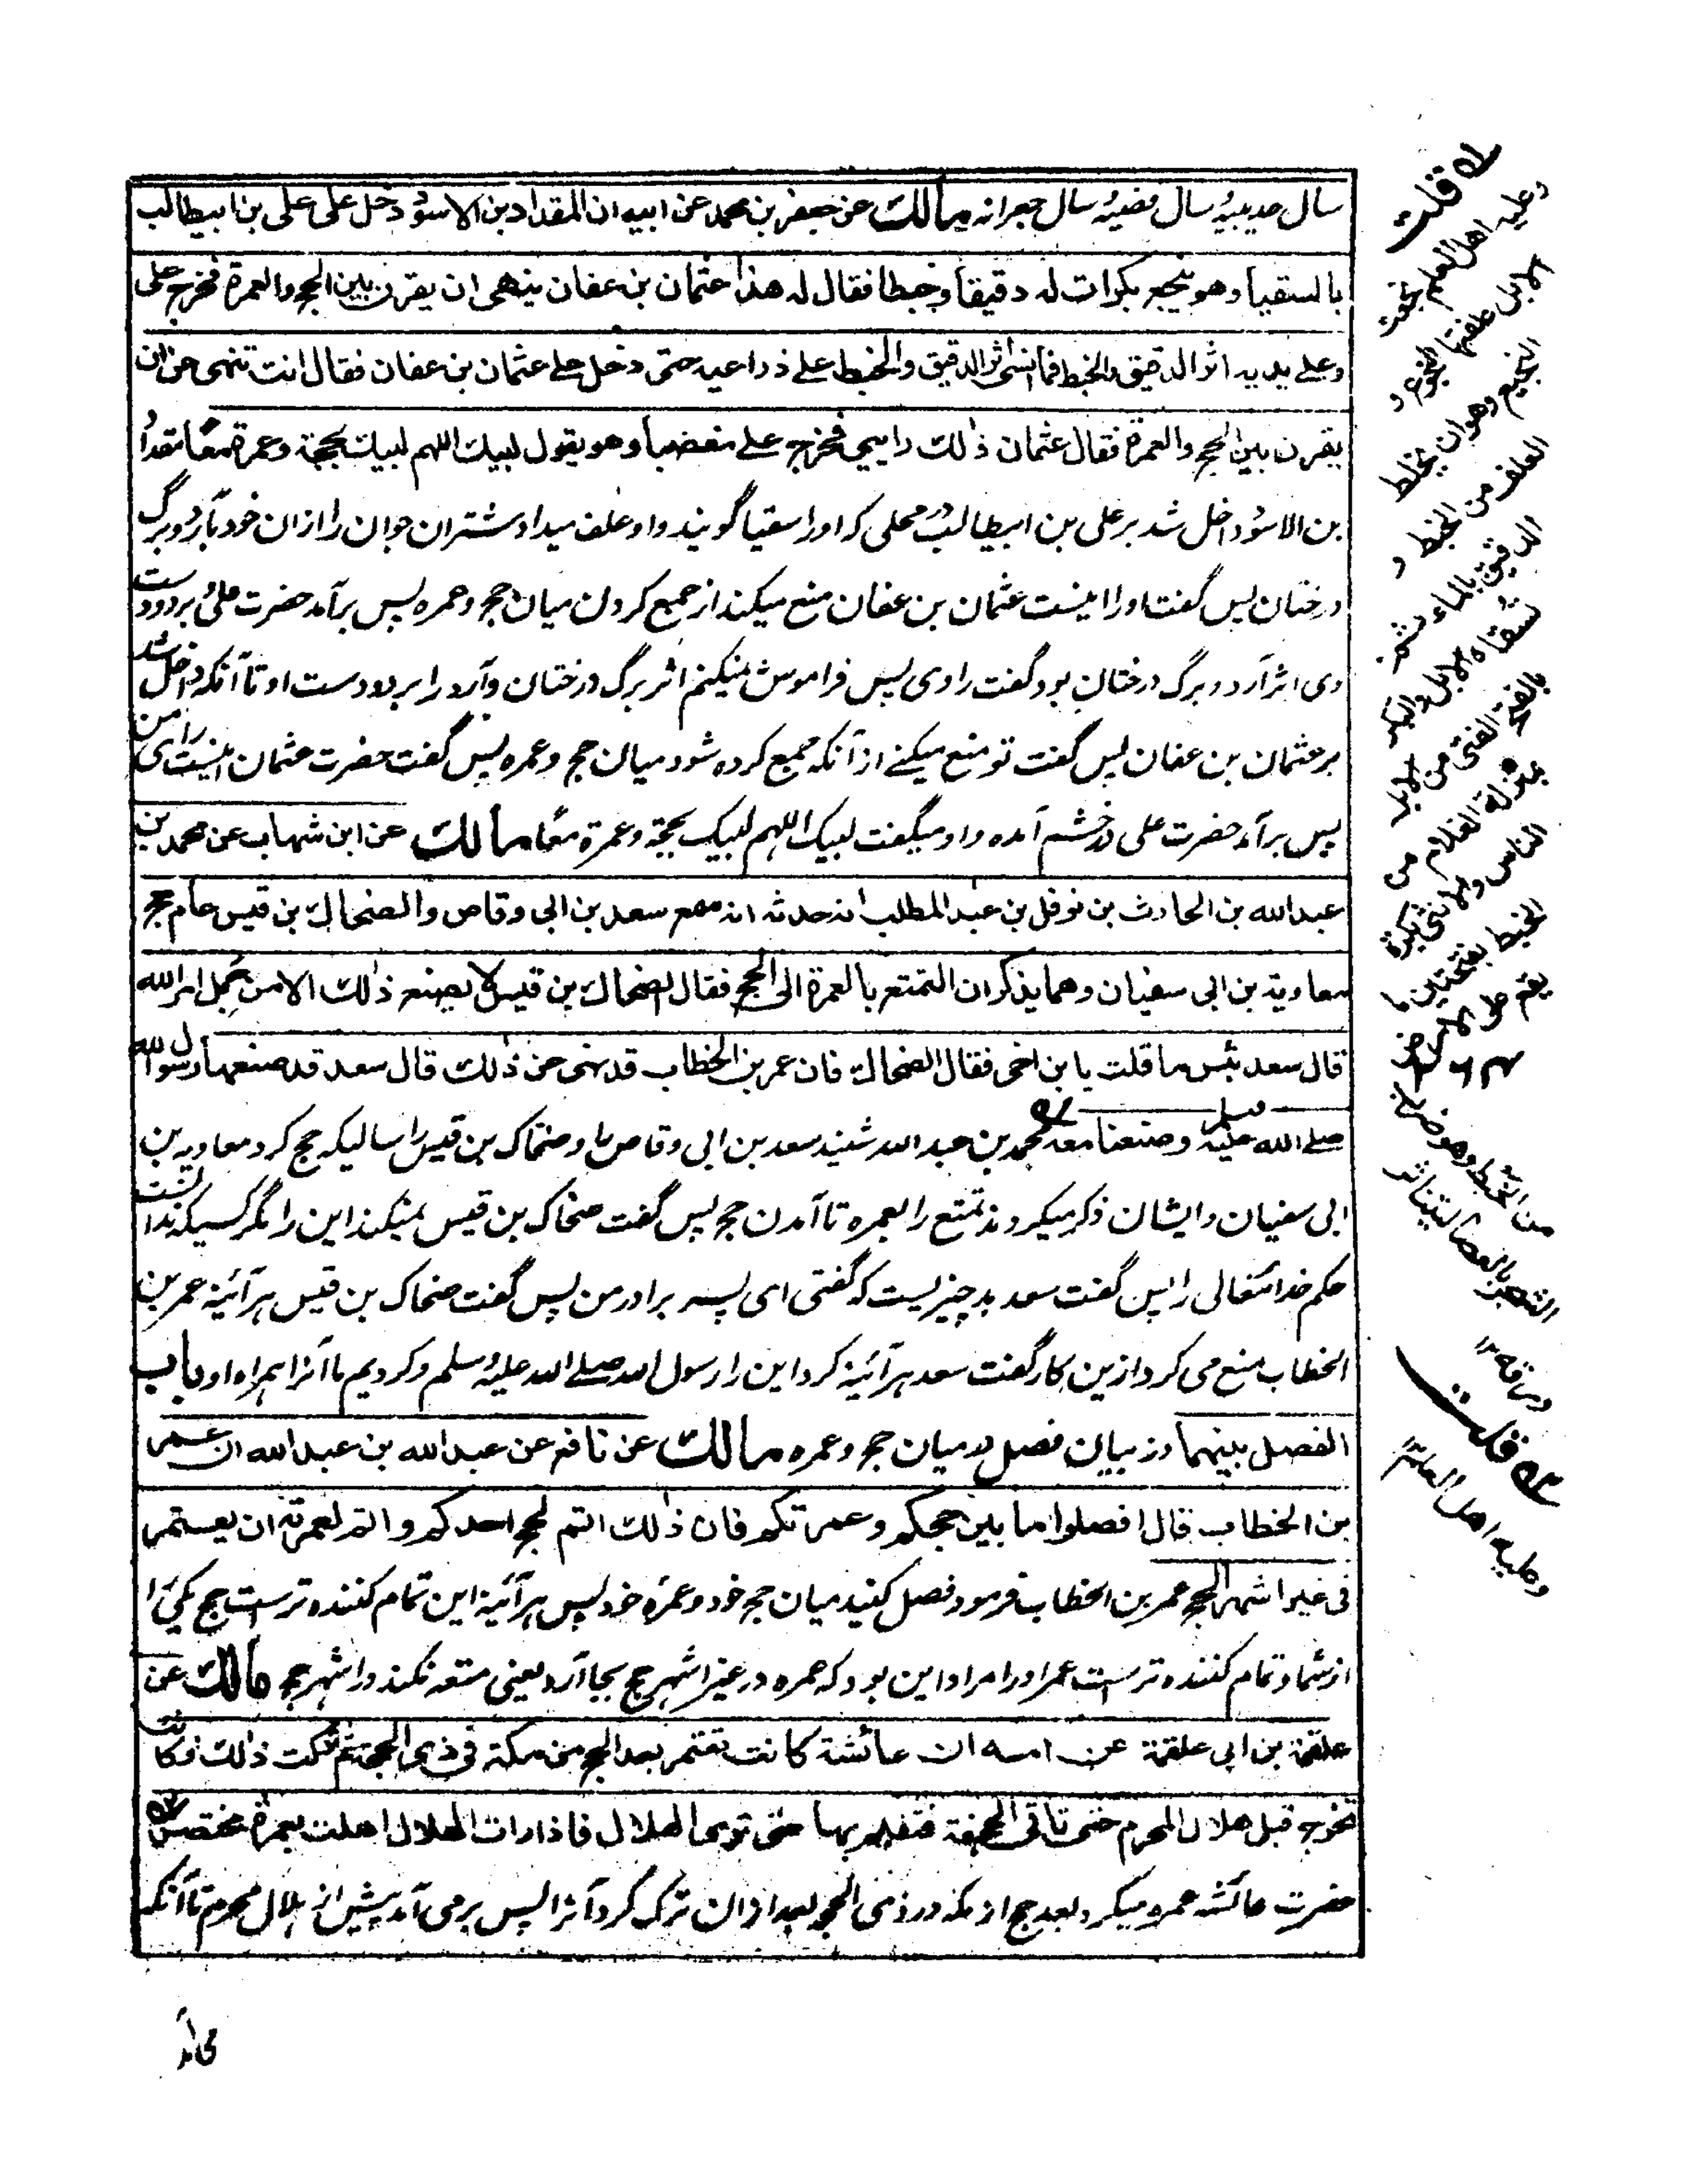 سال حدیبیه سال قضیه سال جعرانه مالك عن جعفر بن محمد عن ابیه ان المقداد بن الاسود دخل علی علی بن ابیطالب
بالسقیا وهو ینجع بکرات له دقیقا وخبطا فقال له هذا عثمان بن عفان ینهی ان یقرن بین الحج والعمرة فخرج علی
وعلے یدیه اثر الدقیق والخبط فما انسی اثر الدقیق والخبط علے ذراعیه حتی دخل علے عثمان بن عفان فقال انت تنهی عن ان
یقرن بین الحج والعمرة فقال عثمان ذٰلك رایی فخرج علے مغضبا وهو یقول لبیك اللهم لبیك بحجة وعمرة معًا مقداد
بن الاسود داخل شد بر علی بن ابیطالب در محلی که او را سقیا گویند و او علف میداد شتران جوان را از ان خود بآرد و برگ
درختان پس گفت او را اینست عثمان بن عفان منع میکند از جمع کردن میان حج و عمره پس برآمد حضرت علی و بر دو دست
وی اثر آرد و برگ درختان بود گفت راوی پس فراموش نمیکنم اثر برگ درختان و آرد را بر دو دست او تا آنکه داخل شد
بر عثمان بن عفان پس گفت تو منع میکنے از آنکه جمع کرده شود میان حج و عمره پس گفت حضرت عثمان اینست رای من
پس برآمد حضرت علی در خشم آمده و او میگفت لبیک اللهم لبیک بحجة وعمرة معًا مالك عن ابن شهاب عن محمد بن
عبدالله بن الحارث بن نوفل بن عبدالمطلب انه حدثه انه سمع سعد بن ابی وقاص والضحاك بن قیس عام حج
معاویة بن ابی سفیان وهما یذکران التمتع بالعمرة الی الحج فقال الضحاك بن قیس لا یصنع ذٰلك الا من جهل امر الله
قال سعد بئس ما قلت یا بن اخی فقال الضحاك فان عمر بن الخطاب قد نهی عن ذٰلك قال سعد قد صنعها رسول الله
صلے الله علیه وسلم وصنعنا معه محمد بن عبد الله شنید سعد بن ابی وقاص را و ضحاک بن قیس را سالیکه حج کرد معاویه بن
ابی سفیان و ایشان ذکر میکردند تمتع را بعمره تا آمدن حج پس گفت ضحاک بن قیس نمیکند این را مگر کسیکه ندانست
حکم خدا تعالی را پس گفت سعد بد چیزیست که گفتی ای پسر برادر من پس گفت ضحاک بن قیس هر آئینه عمر بن
الخطاب منع می کرد ازین کار گفت سعد هر آئینه کرد این را رسول الله صلے الله علیه وسلم و کردیم ما آنرا همراه او باب
الفصل بینهما در بیان فصل در میان حج و عمره مالك عن نافع عن عبدالله بن عبدالله ان عمر
بن الخطاب قال افصلوا ما بین حجکم وعمرتکم فان ذٰلك اتم لحج احدکم واتم لعمرته ان یعتمر
فی غیر اشهر الحج عمر بن الخطاب فرمود فصل کنید میان حج خود و عمرهٔ خود پس هر آئینه این تمام کننده ترست حج یکی را
از شما و تمام کننده ترست عمرا ورا مراد این بود که عمره در غیر اشهر حج بجا آرد یعنی متعه نکند در اشهر حج مالك عن
علقمة بن ابی علقمة عن امه ان عائشة کانت تعتمر بعد الحج من مکة فی ذی الحجة ثم ترکت ذٰلك فکانت
تخرج قبل هلال المحرم حتی تاتی الجحفة فتقیم بها حتی تری الهلال فاذا رات الهلال اهلت بعمرة
حضرت عائشه عمره میکرد بعد حج از مکه در ذی الحجه بعد از ان ترک کرد آنرا پس برمی آمد پیش از هلال محرم تا آنکه
قلت
وعلیه اهل العلم نجعت
الابل علفتها النجوع و
النجیع وهو ان یخلط
العلف من الخبط و
الدقیق بالماء ثم
تسقاه الابل والبکر
بالفتح الفتی من الابل
بمنزلة الغلام من
الناس والانثی بکرة
الخبط بفتحتین ما
من الخبط وهو ضرب
الشجر بالعصا لیتناثر
ورقه ۱۲
قلت
وعلیه اهل العلم ۱۲